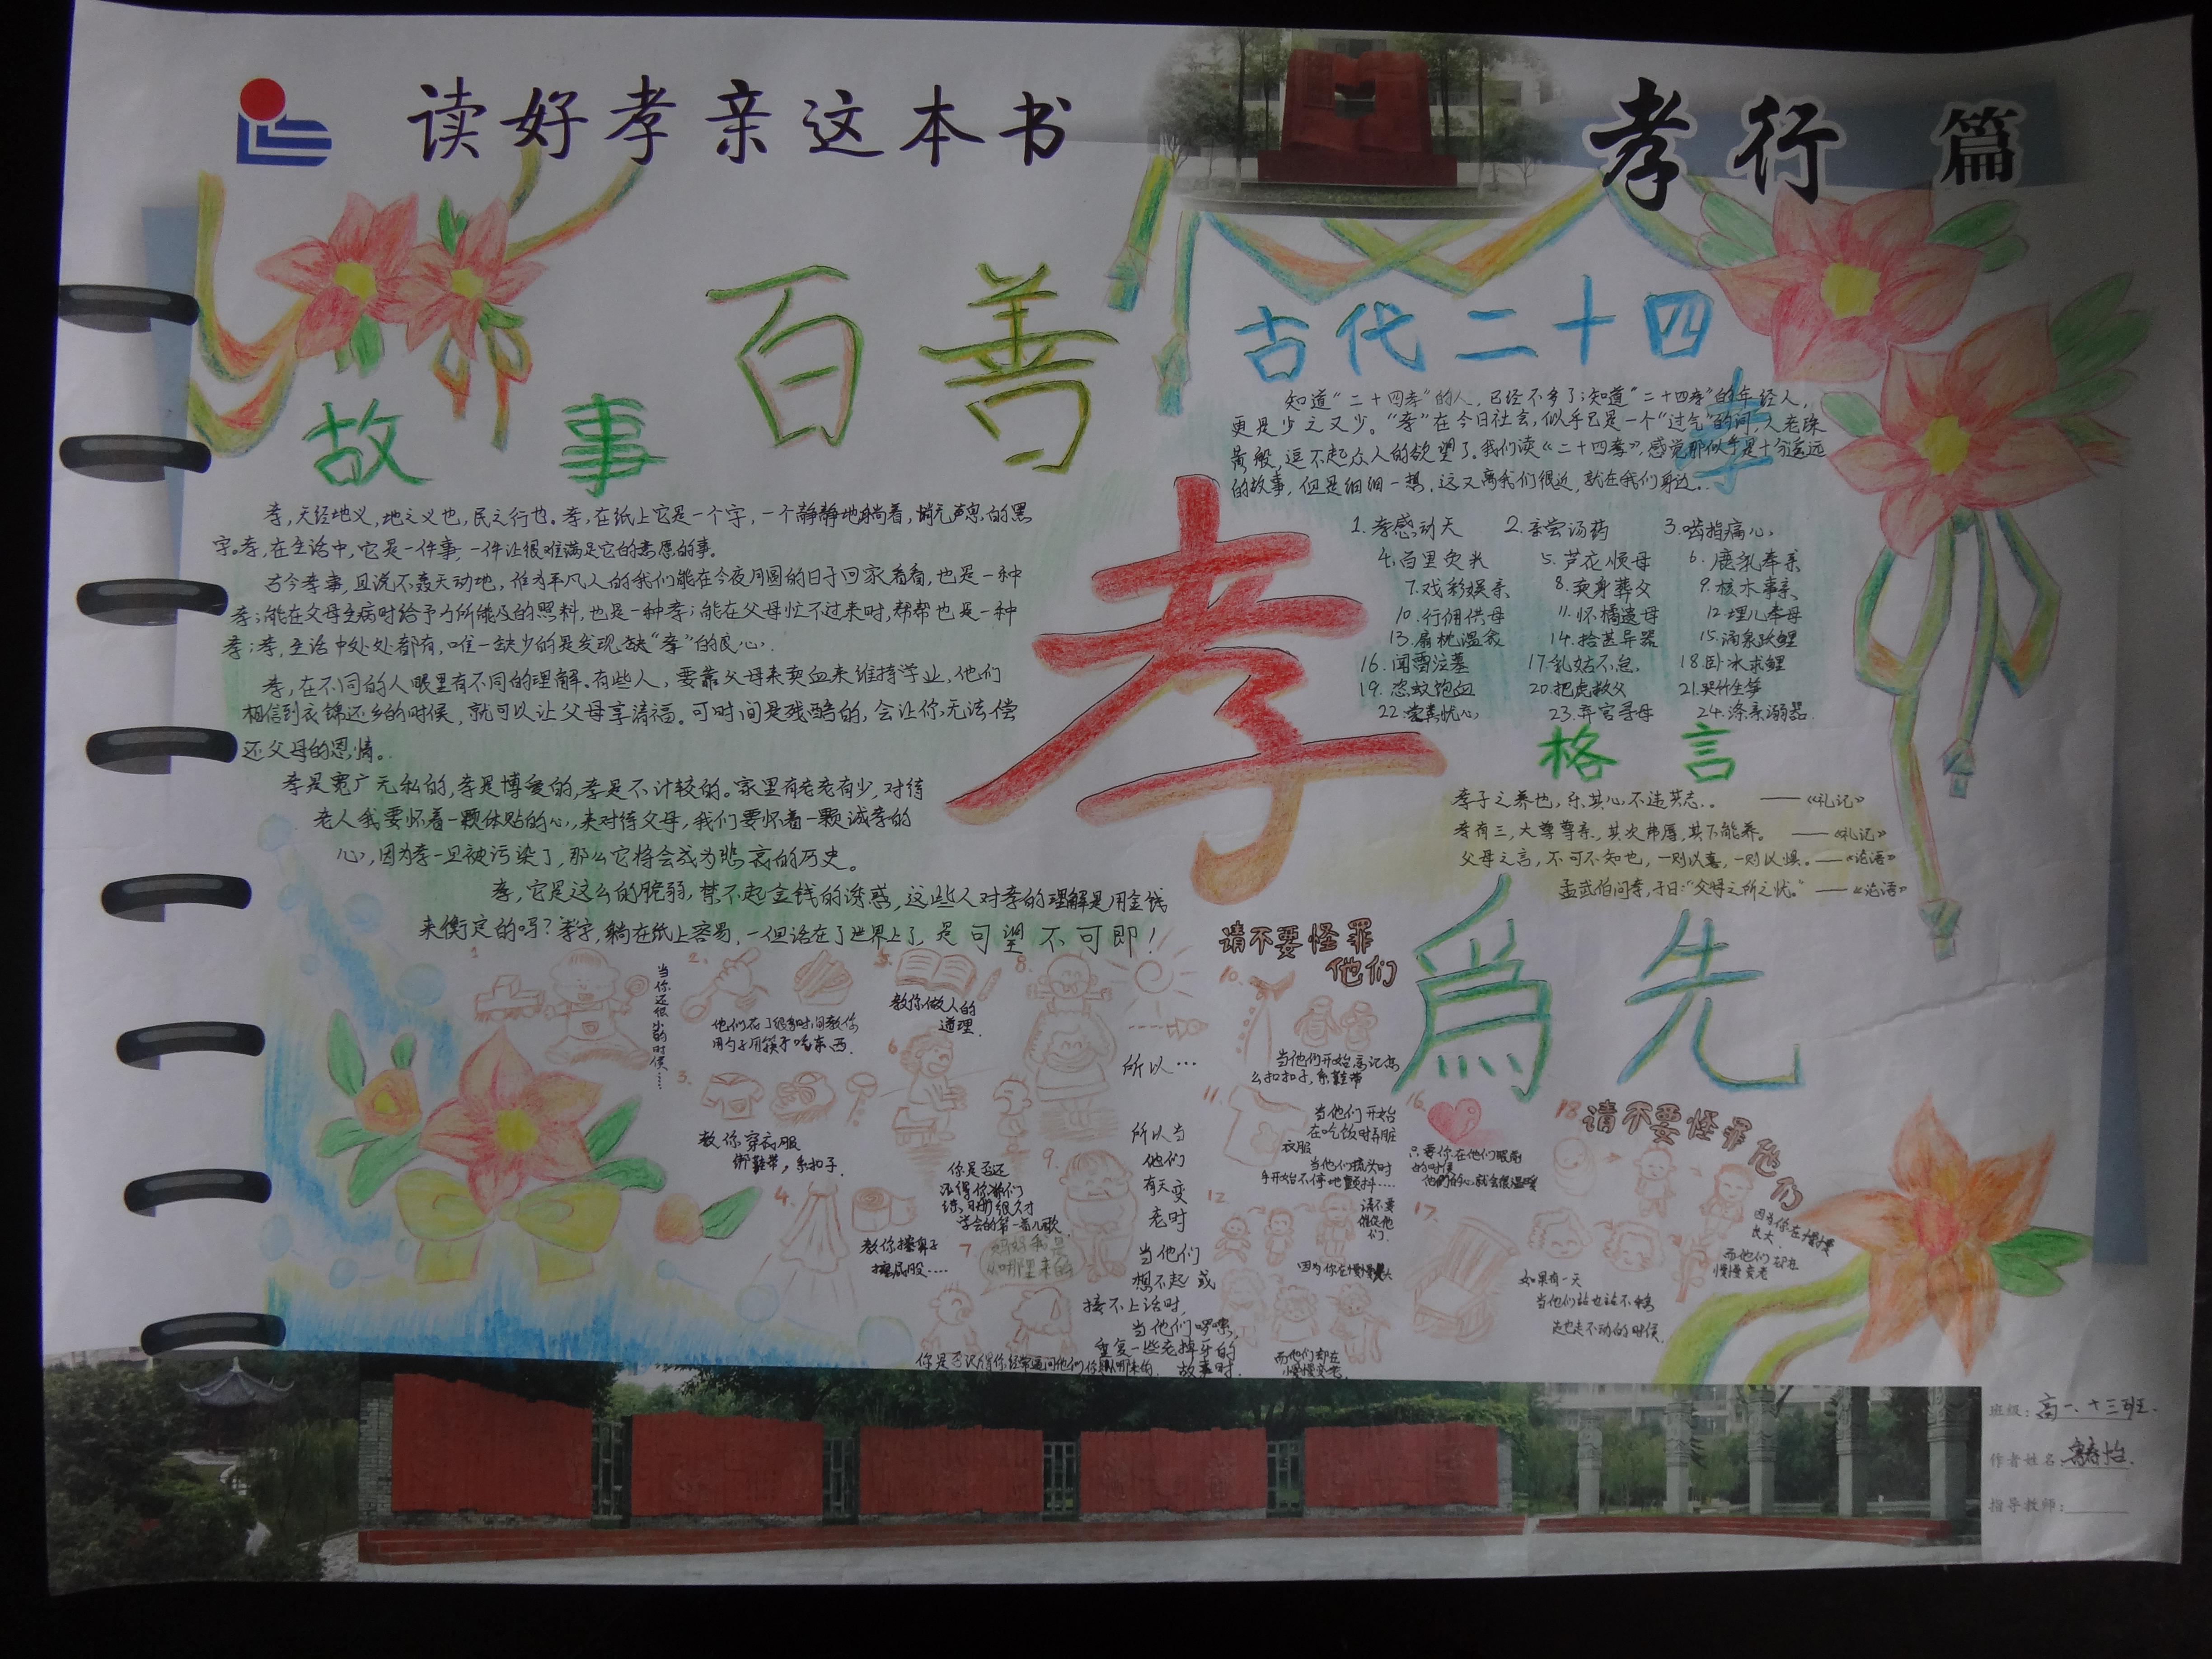 读好孝亲这本书
孝行 篇
百善
孝
為先
故 事
孝,天经地义,地之义也,民之行也。孝,在纸上它是一个字,一个静静地躺着,悄无声息的黑
字。孝,在生活中,它是一件事,一件让很难满足它的意愿的事。
古今孝事,且说不轰天动地,作为平凡人的我们能在今夜月圆的日子回家看看,也是一种
孝;能在父母生病时给予力所能及的照料,也是一种孝;能在父母忙不过来时,帮帮也是一种
孝;孝,生活中处处都有,唯一缺少的是发现缺“孝”的良心.
孝,在不同的人眼里有不同的理解.有些人,要靠父母来卖血来维持学业,他们
相信到衣锦还乡的时候,就可以让父母享清福。可时间是残酷的,会让你无法偿
还父母的恩情。
孝是宽广无私的,孝是博爱的,孝是不计较的。家里有老有少,对待
老人我要怀着一颗体贴的心,来对待父母,我们要怀着一颗诚孝的
心,因为孝一旦被污染了,那么它将会成为悲哀的历史。
孝,它是这么的脆弱,禁不起金钱的诱惑,这些人对孝的理解是用金钱
来衡定的吗?孝字,躺在纸上容易,一但活在了世界上了,是可望不可即!
古代二十四
孝
知道“二十四孝”的人,已经不多了;知道“二十四孝”的年轻人,
更是少之又少。“孝”在今日社会,似乎已是一个“过气”的词,人老珠
黄般,逗不起众人的欲望了。我们读《二十四孝》,感觉那似乎是十分遥远
的故事,但是细细一想,这又离我们很近,就在我们身边..
1.孝感动天 2.亲尝汤药 3.啮指痛心
4.百里负米 5.芦衣顺母 6.鹿乳奉亲
7.戏彩娱亲 8.卖身葬父 9.刻木事亲
10.行佣供母 11.怀橘遗母 12.埋儿奉母
13.扇枕温衾 14.拾葚异器 15.涌泉跃鲤
16.闻雷泣墓 17.乳姑不怠 18.卧冰求鲤
19.恣蚊饱血 20.扼虎救父 21.哭竹生笋
22.尝粪忧心 23.弃官寻母 24.涤亲溺器
格 言
孝子之养也,乐其心,不违其志.. ——《礼记》
孝有三,大尊尊亲,其次弗辱,其下能养。 ——《礼记》
父母之言,不可不知也,一则以喜,一则以惧。——《论语》
孟武伯问孝,子曰:“父母之所之忧。” ——《论语》
1.
当你还很小的时候……
2.
他们花了很多时间教你
用勺子用筷子吃东西.
3.
教你穿衣服
绑鞋带,系扣子.
4.
教你擦鼻子
擦屁股....
5.
教你做人的
道理.
6
你是否还
记得你们
练了很久才
学会的第一首儿歌
7
妈妈我是
从哪里来的
你是否记得你经常逼问他们你从哪来的.
8.
9.
所以…
所以当
他们
有天变
老时
当他们
想不起或
接不上话时,
当他们啰嗦,
重复一些老掉牙的
故事时.
请不要怪罪
他们
10.
当他们开始忘记怎
么扣扣子,系鞋带
11.
当他们开始
在吃饭时弄脏
衣服
当他们梳头时
手开始不停地颤抖....
12
请不要
催促他
们.
因为你在慢慢长大
而他们却在
慢慢变老.
16.
只要你在他们眼前
的时候
他们的心就会很温暖
17.
如果有一天
当他们站也站不稳
走也走不动的时候.
18
请不要怪罪他们
因为你在慢慢
长大
而他们却在
慢慢变老
班级:高一、十三班.
作者姓名:
指导教师: